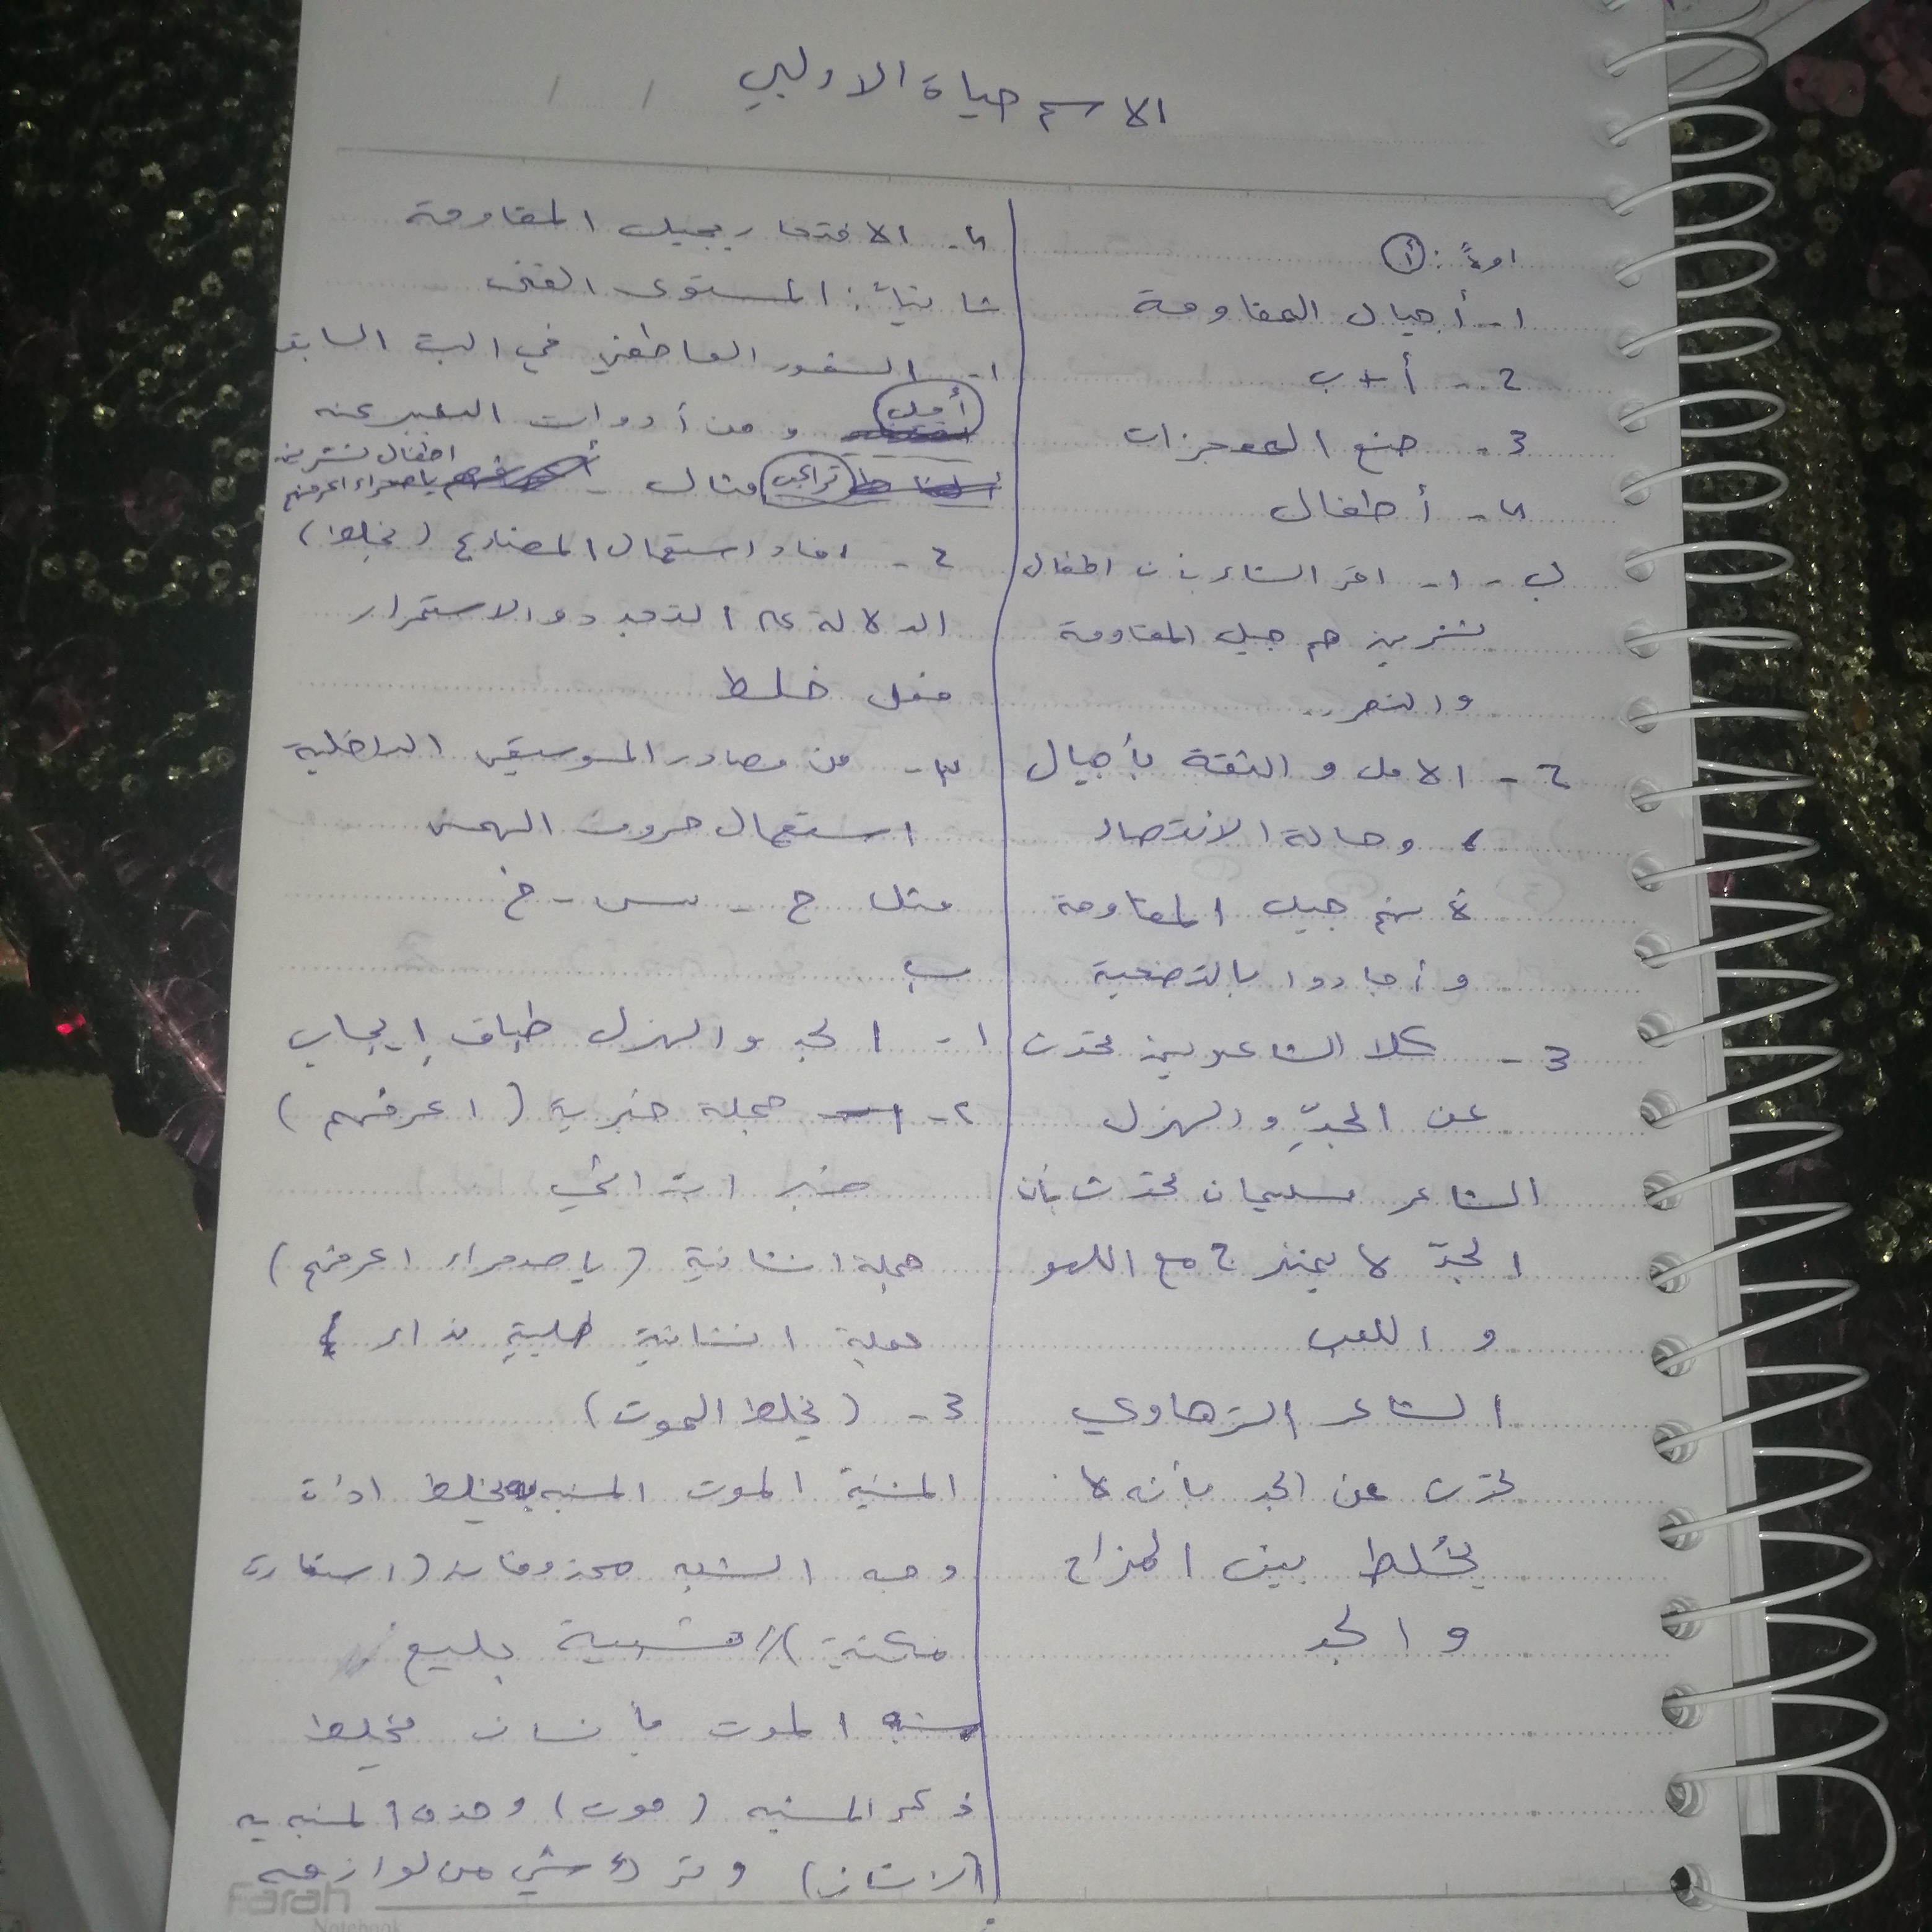 الاسم حياة الاولبي
اولاً: أ
1- أجيال المقاومة
2- أ + ب
3- صنع المعجزات
4- أطفال
ب - 1- اقر الشاعر بأن اطفال
تشرين هم جيل المقاومة
والنصر..
2- الامل والثقة بأجيال
وحالة الانتصار
لأنهم جيل المقاومة
وأجادوا بالتضحية
3- كلا الشاعريين تحدث
عن الجدّ والهزل
الشاعر سليمان تحدث بأن
الجدّ لا يمتزج مع اللهو
و اللعب
الشاعر الزهاوي
تحدث عن الجد بأنه لا
يخُلط بين المزاح
و الجد
4- الافتخار بجيل المقاومة
ثانياً: المستوى الفني
1- الشعور العاطفي في البيت السابق
أمل ومن أدوات التعبير عنه
تراكيب مثال - اطفال تشرين يا صحراء اعرفهم
2- افاد استعمال المضارع (يخلط)
الدلالة على التجدد والاستمرار
فعل خلط
3- من مصادر الموسيقى الداخلية
استعمال حروف الهمس
مثل ح - س - خ
ب
1- الجد والهزل طباق إيجاب
2- جملة خبرية (اعرفهم)
خبر ابتدائي
جملة انشائية (يا صحراء اعرفهم)
جملة انشائية طلبية نداء
3- (يخلط الموت)
المشبه الموت المشبه به يخلط اداة
وجه الشبه محذوفان (استعارة
مكنية) // تشبيه بليغ
شبه الموت بأنسان يخلط
ذكر المشبه (موت) وحذف المشبه به
(الانسان) وترك شي من لوازمه
Farah
Notebook